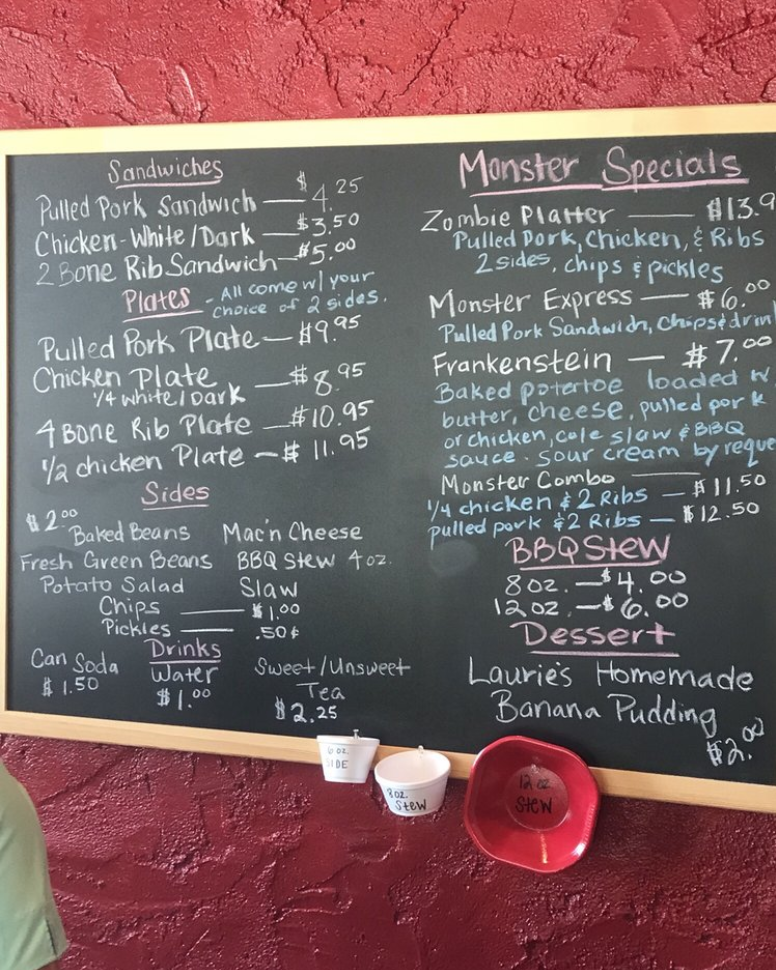 Sandwiches
Pulled Pork Sandwich — $4.25
Chicken-White/Dark — $3.50
2 Bone Rib Sandwich — $5.00
Plates - All come w/ your
choice of 2 sides.
Pulled Pork Plate — $9.95
Chicken Plate — $8.95
1/4 white/Dark
4 Bone Rib Plate — $10.95
1/2 chicken Plate — $11.95
Sides
$2.00
Baked Beans Mac'n Cheese
Fresh Green Beans BBQ Stew 4oz.
Potato Salad Slaw
Chips — $1.00
Pickles — .50¢
Drinks
Can Soda Water Sweet/Unsweet
Tea
$1.50 $1.00 $2.25
Monster Specials
Zombie Platter — $13.9
Pulled Pork, Chicken, & Ribs
2 sides, chips & pickles
Monster Express — $6.00
Pulled Pork Sandwich, Chips & drin
Frankenstein — $7.00
Baked potatoe loaded w
butter, cheese, pulled pork
or chicken, cole slaw & BBQ
sauce. sour cream by reque
Monster Combo
1/4 chicken & 2 Ribs — $11.50
pulled pork & 2 Ribs — $12.50
BBQ Stew
8oz. — $4.00
12oz. — $6.00
Dessert
Laurie's Homemade
Banana Pudding
$2.00
oz.
SIDE
8oz.
Stew
12 oz
Stew